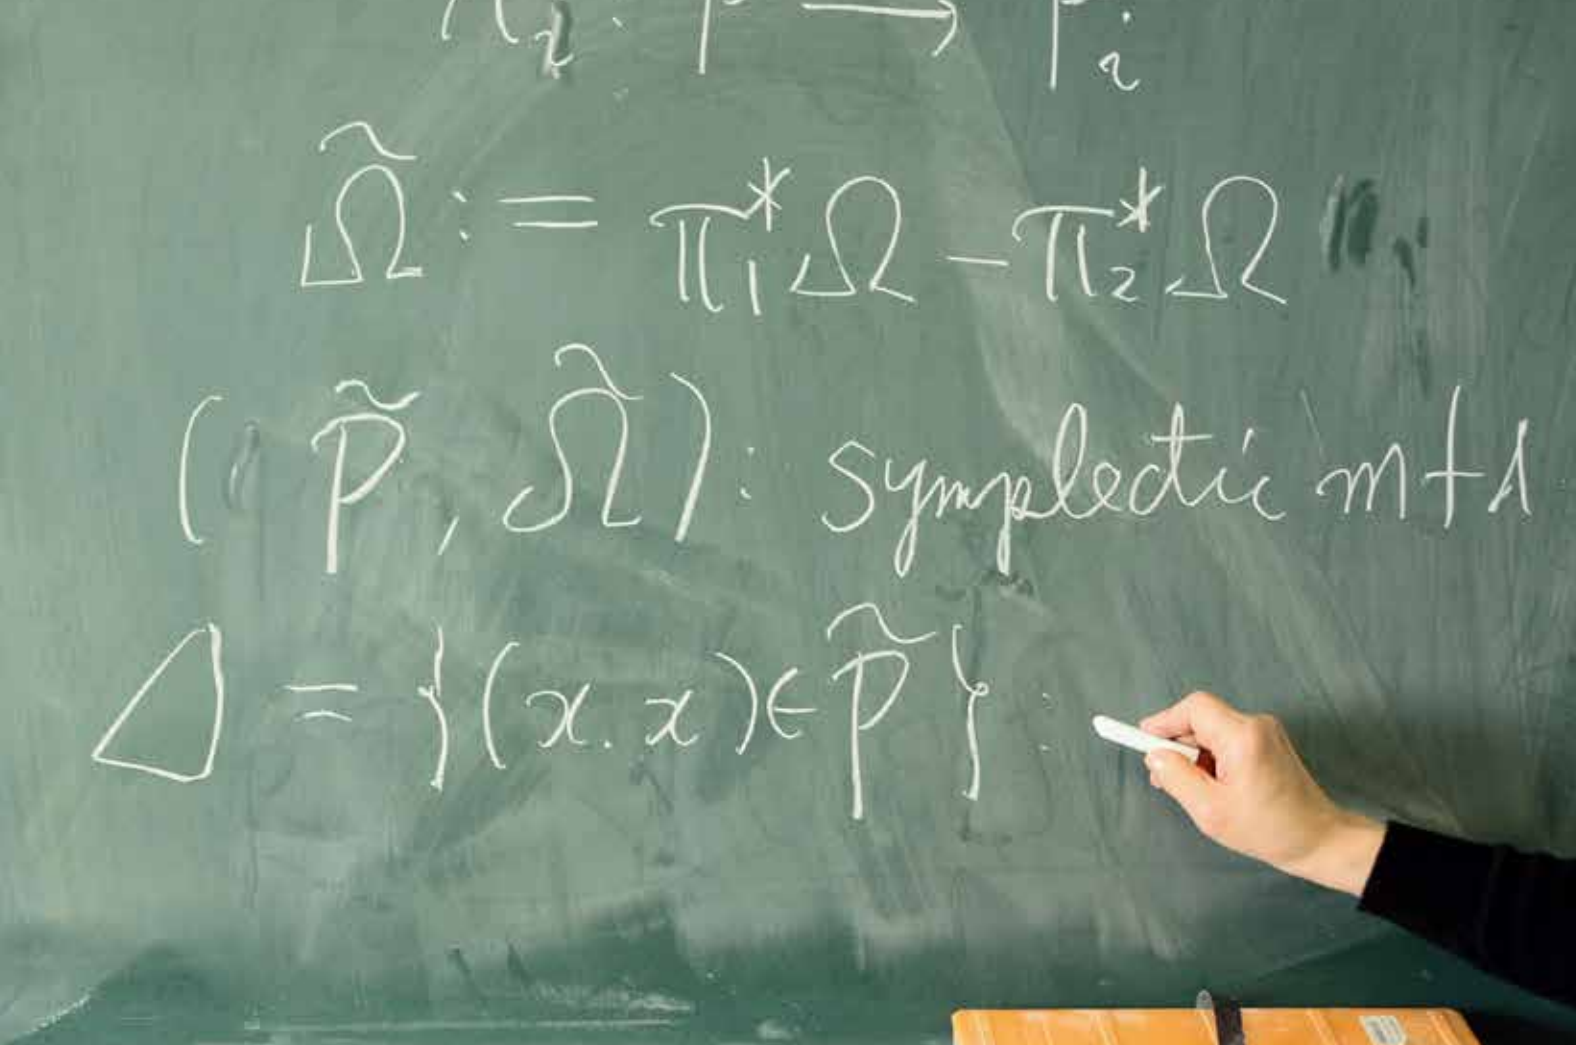 π_i : P → P_i
Ω̃ := π₁*Ω − π₂*Ω
(P̃, Ω̃) : symplectic mfd
Δ = {(x.x) ∈ P̃} :